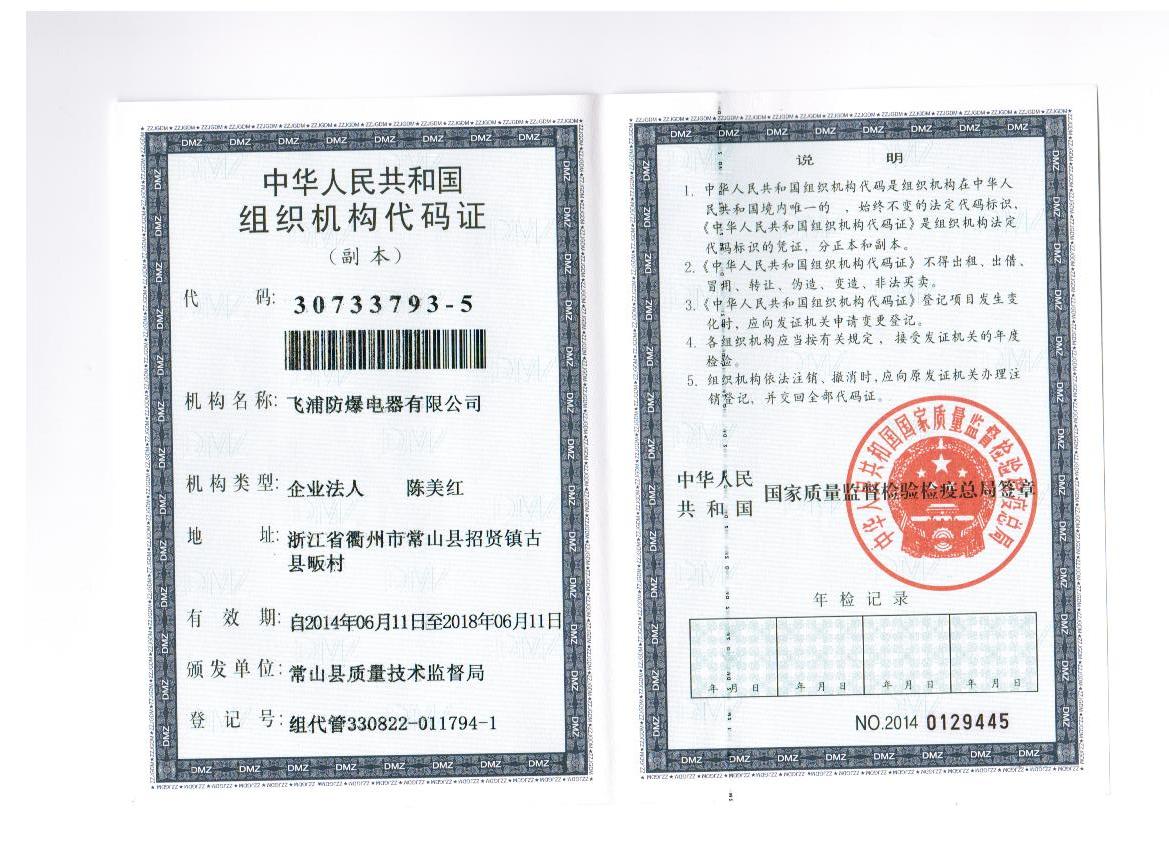 中华人民共和国
组织机构代码证
（副 本）
代 码: 30733793-5
机构名称: 飞浦防爆电器有限公司
机构类型: 企业法人 陈美红
地 址: 浙江省衢州市常山县招贤镇古
县畈村
有 效 期: 自2014年06月11日至2018年06月11日
颁发单位: 常山县质量技术监督局
登 记 号: 组代管330822-011794-1
说 明
1. 中华人民共和国组织机构代码是组织机构在中华人
民共和国境内唯一的 、始终不变的法定代码标识，
《中华人民共和国组织机构代码证》是组织机构法定
代码标识的凭证，分正本和副本。
2.《中华人民共和国组织机构代码证》不得出租、出借、
冒用、转让、伪造、变造、非法买卖。
3.《中华人民共和国组织机构代码证》登记项目发生变
化时，应向发证机关申请变更登记。
4. 各组织机构应当按有关规定，接受发证机关的年度
检验。
5. 组织机构依法注销、撤消时,应向原发证机关办理注
销登记，并交回全部代码证。
中华人民
共 和 国 国家质量监督检验检疫总局签章
中华人民共和国国家质量监督检验检疫总局
年 检 记 录
年 月 日 年 月 日 年 月 日 年 月 日
NO.2014 0129445